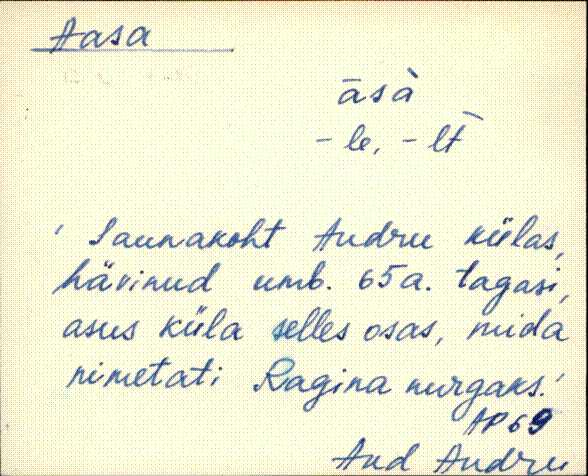 Aasa
āsà
- le, - lt̄
' Saunakoht Andru külas,
hävinud umb. 65 a. tagasi,
asus küla selles osas, mida
nimetati Ragina nurgaks.'
AP 69
Aud Andru